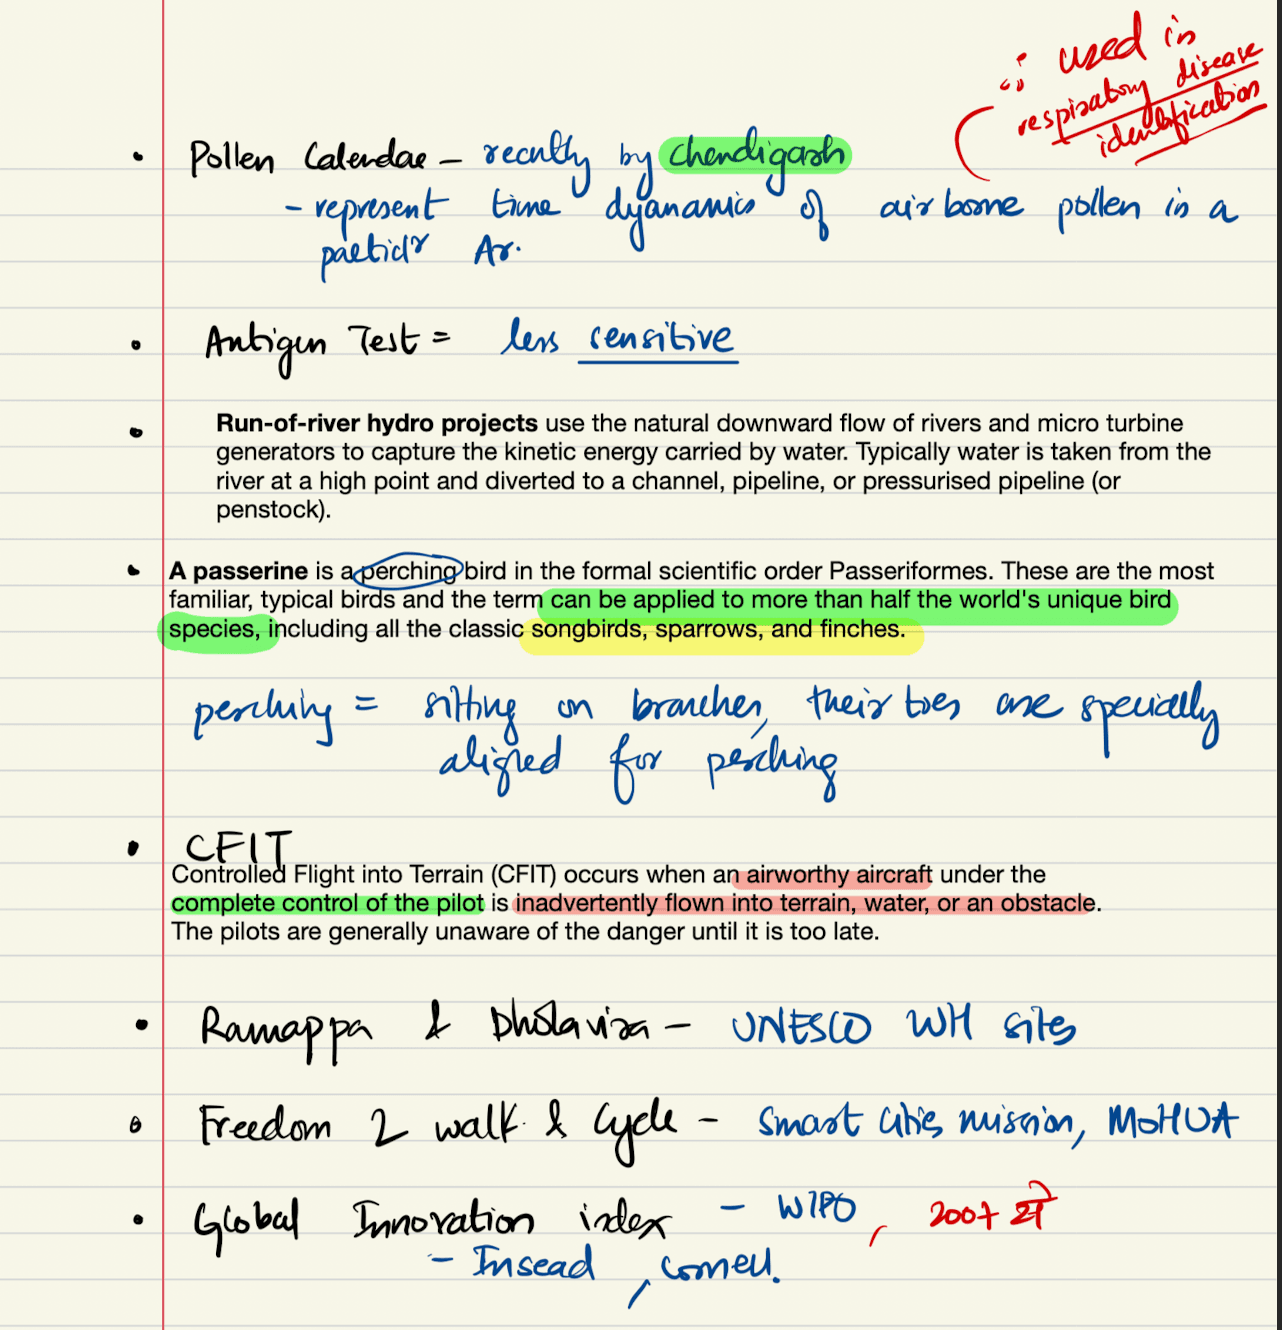 ∴ used in
respiratory disease
identification
• Pollen Calendar – recently by chandigarh
- represent time dyanamics of airborne pollen in a
particlr Ar.
• Antigen Test = less sensitive
• Run-of-river hydro projects use the natural downward flow of rivers and micro turbine
generators to capture the kinetic energy carried by water. Typically water is taken from the
river at a high point and diverted to a channel, pipeline, or pressurised pipeline (or
penstock).
• A passerine is a perching bird in the formal scientific order Passeriformes. These are the most
familiar, typical birds and the term can be applied to more than half the world's unique bird
species, including all the classic songbirds, sparrows, and finches.
perching = sitting on branches, their toes are specially
aligned for perching
• CFIT
Controlled Flight into Terrain (CFIT) occurs when an airworthy aircraft under the
complete control of the pilot is inadvertently flown into terrain, water, or an obstacle.
The pilots are generally unaware of the danger until it is too late.
• Ramappa & Dholavira – UNESCO WH sites
• Freedom 2 walk & Cycle – Smart Cities mission, MoHUA
• Global Innovation index – WIPO, 2007 से
– Insead, cornell.